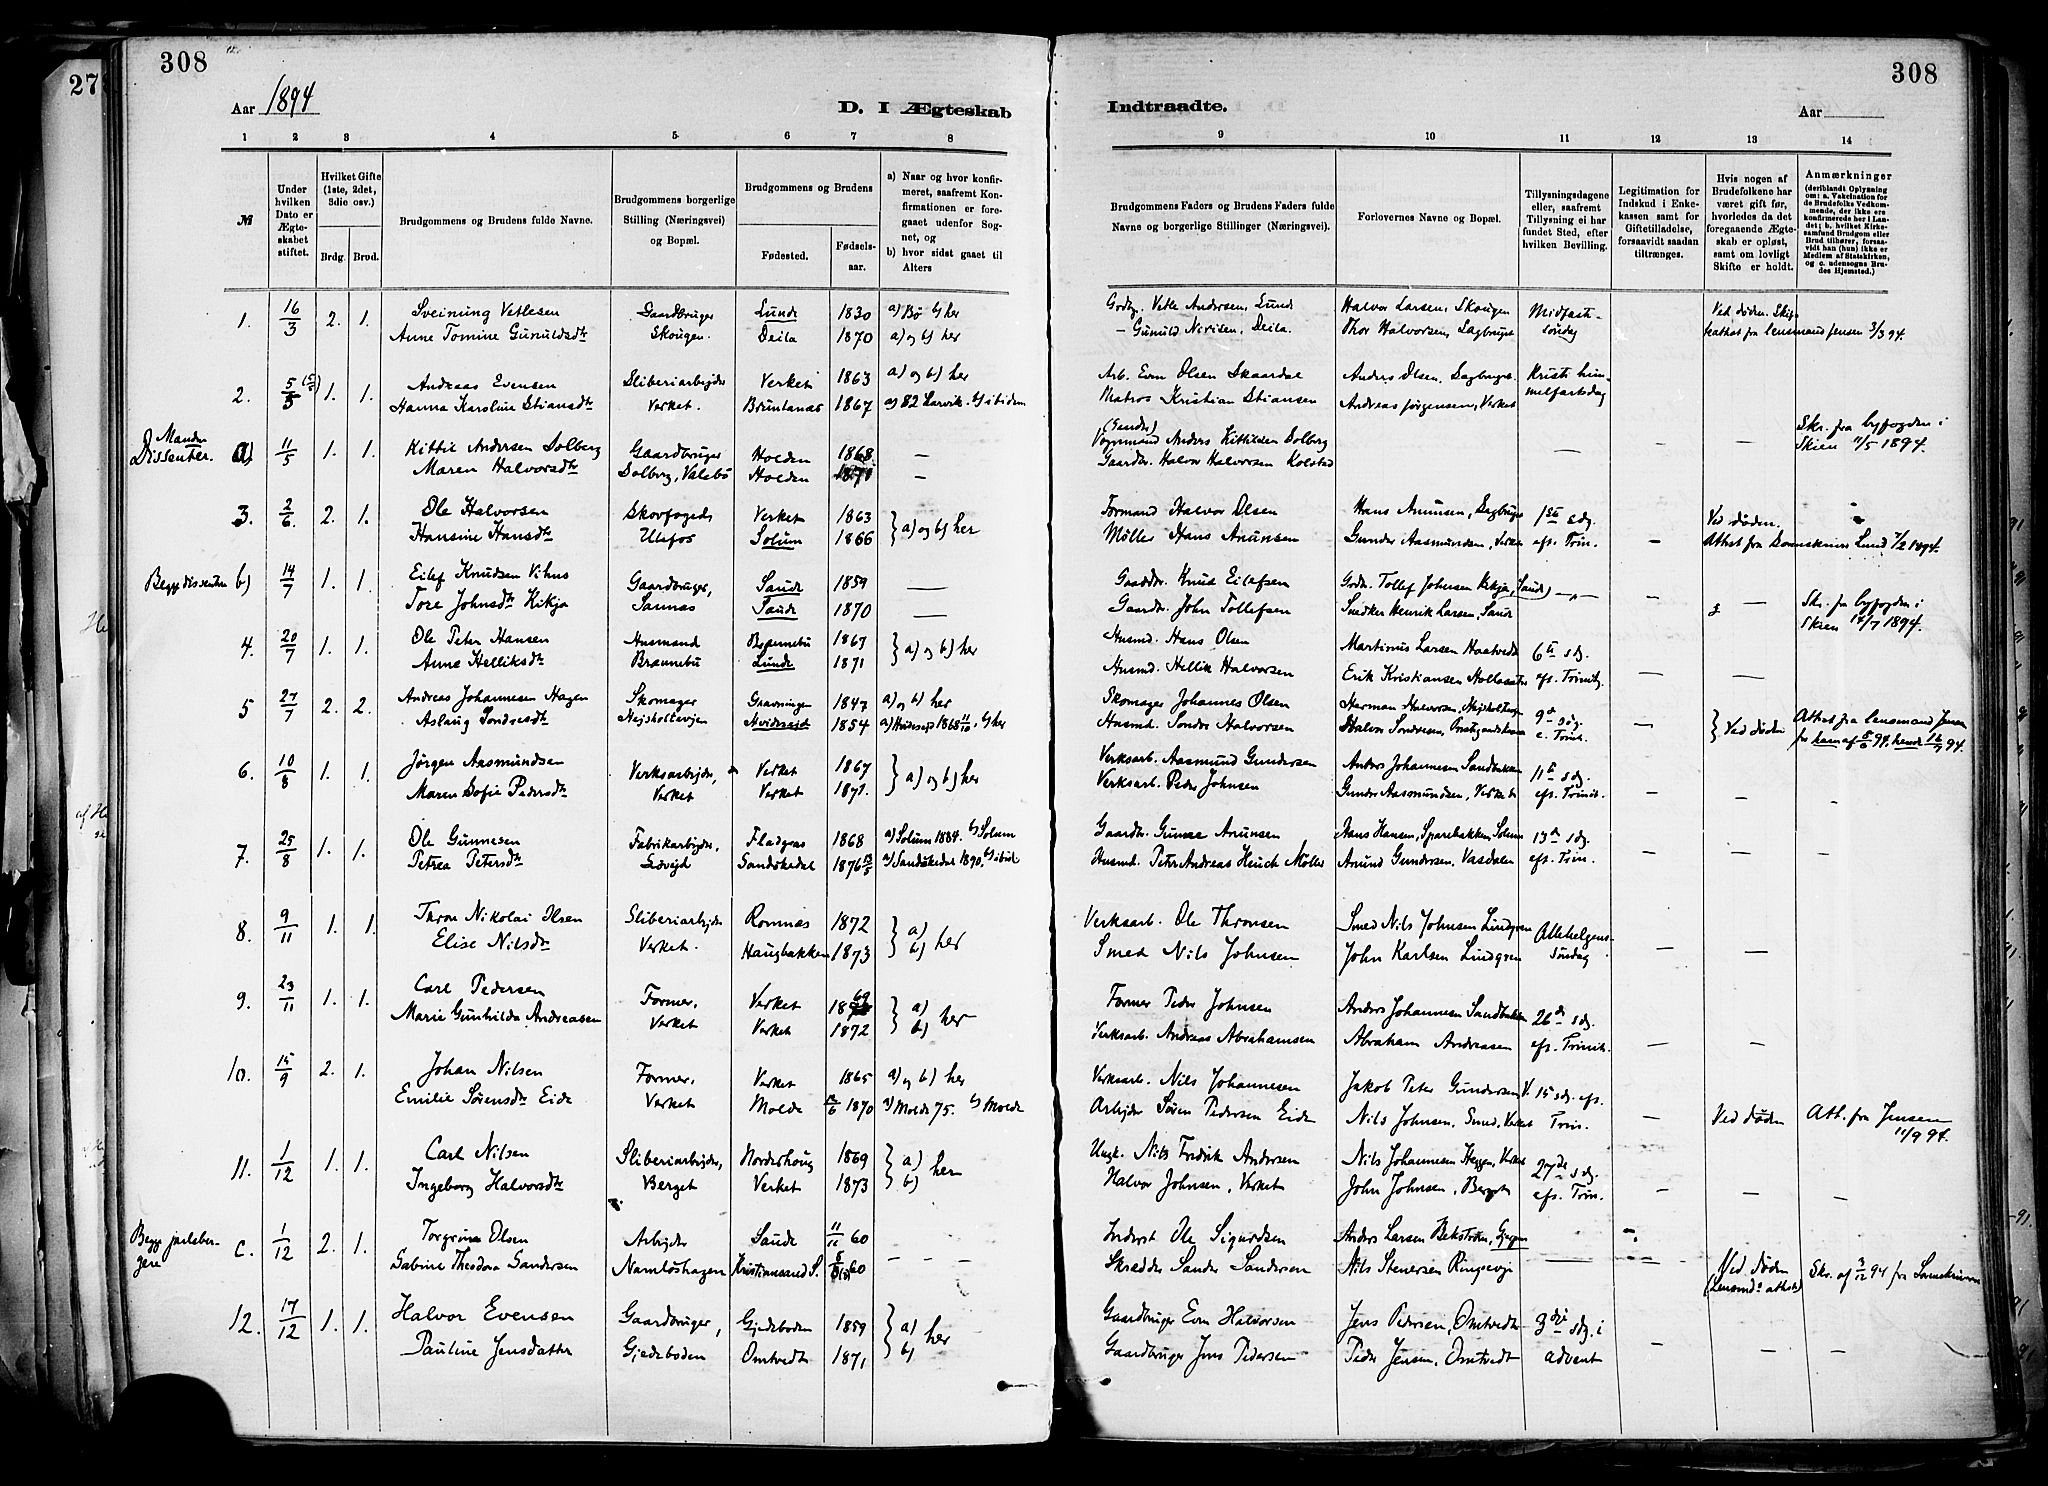 308
308
27
Aar 1894
D. I Ægteskab
Indtraadte.
Aar
1 2 3 4 5 6 7 8
9 10 11 12 13 14
№
Under hvilken Dato er Ægteskabet stiftet.
Hvilket Gifte (1ste, 2det, 3die osv.)
Brdg. Brud.
Brudgommens og Brudens fulde Navne.
Brudgommens borgerlige Stilling (Næringsvei) og Bopæl.
Brudgommens og Brudens
Fødested.
Fødselsaar.
a) Naar og hvor konfirmeret, saafremt Konfirmationen er foregaaet udenfor Sognet, og
b) hvor sidst gaaet til Alters
Brudgommens Faders og Brudens Faders fulde Navne og borgerlige Stillinger (Næringsvei).
Forlovernes Navne og Bopæl.
Tillysningsdagene eller, saafremt Tillysning ei har fundet Sted, efter hvilken Bevilling.
Legitimation for Indskud i Enkekassen samt for Giftetilladelse, forsaavidt saadan tiltrænges.
Hvis nogen af Brudefolkene har været gift før, hvorledes da det foregaaende Ægteskab er opløst, samt om lovligt Skifte er holdt.
Anmærkninger (deriblandt Oplysning om: a. Vakcination for de Brudefolks Vedkommende, der ikke ere konfirmerede her i Landet; b. hvilket Kirkesamfund Brudgom eller Brud tilhører, forsaavidt han (hun) ikke er Medlem af Statskirken, og c. udensogns Brudes Hjemsted.)
1. 16/3 2. 1. Sveinung Vetlesen Gaardbruger Lunde 1830 a) Bø b) her Grdbr. Vetle Andersen, Lunde Halvor Larsen, Skougen Midfaste- Ved døden. Skifte-
Anne Tomine Gunuldsdtr Skougen. Deila 1870 a) og b) her - Gunuld Nirisen, Deila. Thor Halvorsen, Sagbruget søndag attest fra lensmand Jensen 3/3 94.
2. 5/5 1. 1. Andreas Evensen Sliberiarbejder Verket 1863 a) og b) her Arb. Even Olsen Skaardal Anders Olsen, Sagbruget. Kristi him-
Hanna Karoline Stiansdtr Verket. Bruntanæs 1867 a) 82 Larvik. b) ibidem Matros Kristian Stiansen Andreas Jørgensen, Verket melfartsdag
Manden Dissenter. a) 11/5 1. 1. Kittil Andersen Solberg Gaardbruger Holden 1868 — Anders Kittilsen Solberg — — — Skr. fra byfogden i
Maren Halvorsdtr Solberg, Valebø Holden 1871 — Gaardbr. Halvor Halvorsen Kolstad Skien 11/5 1894.
3. 2/6. 2. 1. Ole Halvorsen Skovfoged Verket 1863 } a) og b) her Formand Halvor Olsen Hans Anunsen, Sagbruget 1ste sdg. Ved døden.
Hansine Hansdtr Ulefos Solum 1866 Møller Hans Anunsen Gunder Aasmundsen, Verket ef. Trin. — Attest fra Lund 7/2 1894.
Begge dissentere b) 14/7 1. 1. Eilef Knudsen Vihus Gaardbruger, Saude 1859 — Gaardbr. Knud Eilefsen Grdbr. Tollef Johnsen Kikja, Saude — — — Skr. fra byfogden i
Tore Johnsdtr Kikja Sannæs Saude 1870 — Gaardbr. John Tollefsen Snedker Henrik Larsen, Saude Skien 14/7 1894.
4. 20/7 1. 1. Ole Peter Hansen Husmand Brænnebu 1867 } a) og b) her Husmd. Hans Olsen Martinus Larsen Haatvedt 6te sdg.
Anne Helliksdtr Brænnebu Lunde 1871 Husmd. Hellik Halvorsen Erik Kristiansen Hollasæter ef. Trinit. — — —
5 27/7 2. 2. Andreas Johannesen Hagen Skomager Gravningen 1847 a) og b) her Skomager Johannes Olsen Herman Halvorsen, Nejsholtvejen 9de sdg. } Ved døden Attest fra lensmand Jensen
Aslaug Sondresdtr Nejsholtvejen Hvideseid 1854 a) Hvideseid 1868, b) her Husmd. Sondre Halvorsen Halvor Sondresen, e. Trinit. — for ham af 5/6 94, hende 16/7 94.
6. 10/8 1. 1. Jørgen Aasmundsen Verksarbejder, Verket 1867 } a) og b) her Verksarb. Aasmund Gundersen Anders Johannesen Sandbakken 11te sdg.
Maren Sofie Pedersdtr Verket Verket 1871. Verksarb. Peder Johnsen Gunder Aasmundsen, Verket ef. Trinit. — — —
7. 25/8 1. 1. Ole Gunnesen Fabrikarbejder, Fladgras 1868 a) Solum 1884. b) Solum Gaardbr. Gunne Anunsen Hans Hansen, Sparebakken Solum 13de sdg.
Petrea Petersdtr Løvejd Sandøkedal 1876 a) Sandøkedal 1890, b) ibid. Husmd. Peter Andreas Møller Anund Gundersen, Vasdalen ef. Trin. — — —
8. 9/11 1. 1. Thron Nikolai Olsen Sliberiarbejder Romnæs 1872 } a) Verksarb. Ole Thronsen Smed Nils Johnsen Lindgren Allehelgens-
Elise Nilsdtr Verket. Haugbakken 1873 b) her Smed Nils Johnsen John Karlsen Lindgren søndag — —
9. 23/11 1. 1. Carl Pedersen Former, Verket 1869 } a) Former Peder Johnsen Anders Johannesen Sandbakken 26de sdg.
Marie Gunhilda Andreasen Verket Verket 1872 b) her Verksarb. Andreas Abrahamsen Abraham Andreasen ef. Trinit. — —
10. 15/9 2. 1. Johan Nilsen Former, Verket 1865 a) og b) her Verksarb. Nils Johannesen Jakob Peter Gundersen V. 15 sdg. ef. Ved døden Att. fra Jensen
Emilie Sørensdtr Eide Verket Molde 12/6 1870 a) Molde 75. b) Molde Arbejder Søren Pedersen Eide Nils Johnsen, Smed, Verket Trin. — 11/9 94.
11. 1/12 1. 1. Carl Nilsen Sliberiarbejder, Norderhoug 1869 } a) Ungk. Nils Fredrik Andersen Nils Johannesen Heggen, Verket 27de sdg.
Ingeborg Halvorsdtr Berget Verket 1873 b) her Halvor Johnsen, Verket John Johnsen, Berget ef. Trin. — — —
Begge jarlsbergere c. 1/12 2. 1. Torgrim Olsen Arbejder Saude 11/11 60 — — Inderst Ole Sigurdsen Anders Larsen Bekstrøm, — Ved døden Skr. af 3/12 94 fra Sorenskriveren
Gabrine Theodora Sandersen Namløshagen Kristiansand S. 60 Skrædder Sander Sandersen Nils Stenersen Ringsvej (Lensmds attest)
12. 17/12 1. 1. Halvor Evensen Gaardbruger, Gjedeboden 1859 } a) Gaardbruger Even Halvorsen Jens Pedersen, Omtvedt 3die sdg. i
Pauline Jensdatter Gjedeboden Omtvedt 1871 b) her Gaardbruger Jens Pedersen Peder Jensen, Omtvedt advent — — —